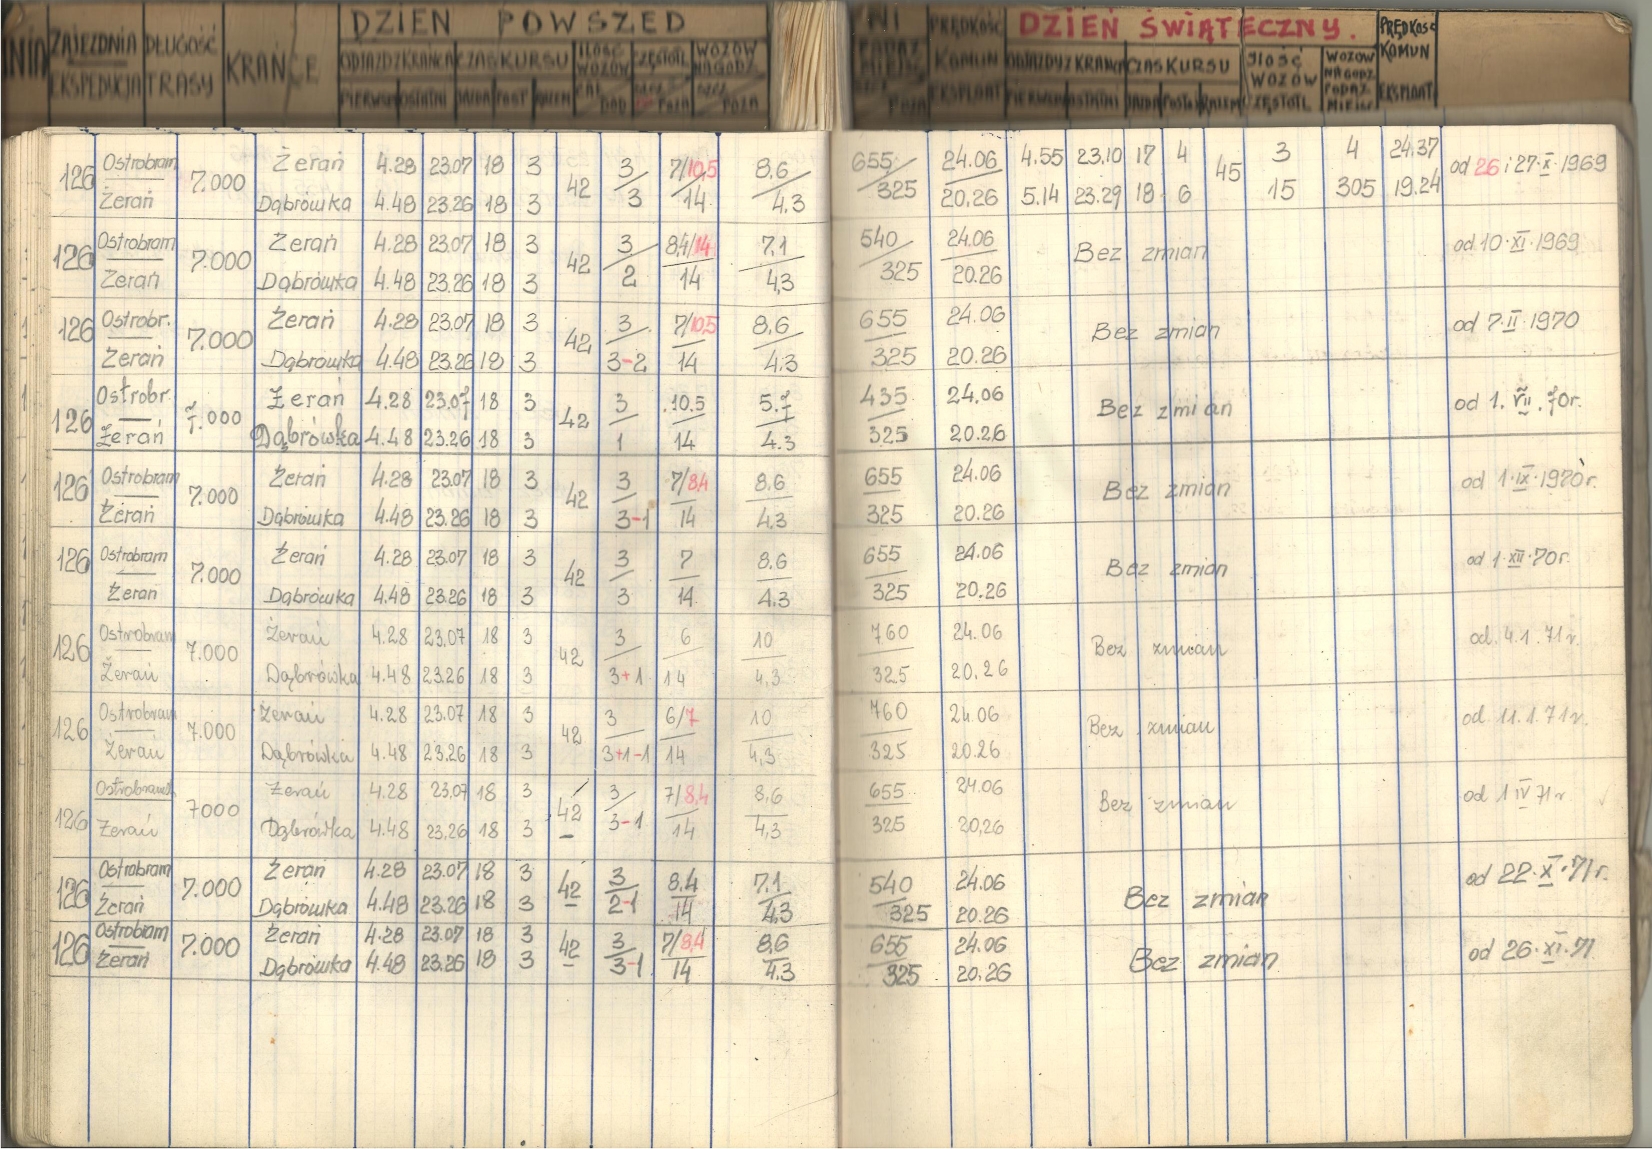 DZIEŃ POWSZED NI DZIEŃ ŚWIĄTECZNY.
NIA ZAJEZDNIA DŁUGOŚĆ KRAŃCE ODJAZD Z KRAŃCA CZAS KURSU ILOŚĆ WOZÓW CZĘSTOTL WOZÓW NA GODZ. PRĘDKOŚĆ ODJAZDY Z KRAŃCA CZAS KURSU ILOŚĆ WOZÓW WOZÓW NA GODZ. PRĘDKOŚĆ
EKSPEDYCJA TRASY PIERWSZY OSTATNI JAZDA POST RAZEM DOD POZA POZA KOMUN EKSPLOAT PIERWSZY OSTATNI JAZDA POSTÓJ RAZEM CZĘSTOTL KOMUN EKSPLOAT.
126 Ostrobram 7.000 Żerań 4.28 23.07 18 3 42 3 7/10,5 8,6 655 24.06 4.55 23.10 17 4 45 3 4 24.37 od 26 i 27·X·1969
Żerań Dąbrówka 4.48 23.26 18 3 3 14 4,3 325 20,26 5.14 23.29 18 6 15 305 19.24
126 Ostrobram 7.000 Żerań 4.28 23.07 18 3 42 3 8,4/14 7,1 540 24.06 Bez zmian od 10·XI·1969
Żerań Dąbrówka 4.48 23.26 18 3 2 14 4,3 325 20.26
126 Ostrobr. 7.000 Żerań 4.28 23.07 18 3 42 3 7/10,5 8,6 655 24.06 Bez zmian od 7·II·1970
Żerań Dąbrówka 4.48 23.26 18 3 3-2 14 4,3 325 20.26
126 Ostrobr. 7.000 Żerań 4.28 23.07 18 3 42 3 10.5 5.7 435 24.06 Bez zmian od 1. VII. 70r.
Żerań Dąbrówka 4.48 23.26 18 3 1 14 4.3 325 20.26
126 Ostrobram 7.000 Żerań 4.28 23.07 18 3 42 3 7/8,4 8,6 655 24.06 Bez zmian od 1·IX·1970r.
Żerań Dąbrówka 4.48 23.26 18 3 3-1 14 4,3 325 20.26
126 Ostrobram 7.000 Żerań 4.28 23.07 18 3 42 3 7 8,6 655 24.06 Bez zmian od 1·XII·70r.
Żerań Dąbrówka 4.48 23.26 18 3 3 14 4,3 325 20.26
126 Ostrobram 7.000 Żerań 4.28 23.07 18 3 42 3 6 10 760 24.06 Bez zmian od. 4.1.71r.
Żerań Dąbrówka 4.48 23.26 18 3 3+1 14 4,3 325 20,26
126 Ostrobram 7.000 Żerań 4.28 23.07 18 3 42 3 6/7 10 760 24.06 Bez zmian od. 11.1.71r.
Żerań Dąbrówka 4.48 23.26 18 3 3+1-1 14 4,3 325 20.26
126 Ostrobramsk 7000 Żerań 4.28 23.07 18 3 42 3 7/8,4 8,6 655 24.06 Bez zmian od 1 IV 71r
Żerań Dąbrówka 4.48 23.26 18 3 3-1 14 4,3 325 20,26
126 Ostrobram 7.000 Żerań 4.28 23.07 18 3 42 3 8,4 7,1 540 24.06 Bez zmian od 22·X·71r.
Żerań Dąbrówka 4.48 23.26 18 3 2-1 14 4,3 325 20.26
126 Ostrobram 7.000 Żerań 4.28 23.07 18 3 42 3 7/8,4 8,6 655 24.06 Bez zmian od 26·XI·71
Żerań Dąbrówka 4.48 23.26 18 3 3-1 14 4,3 325 20.26